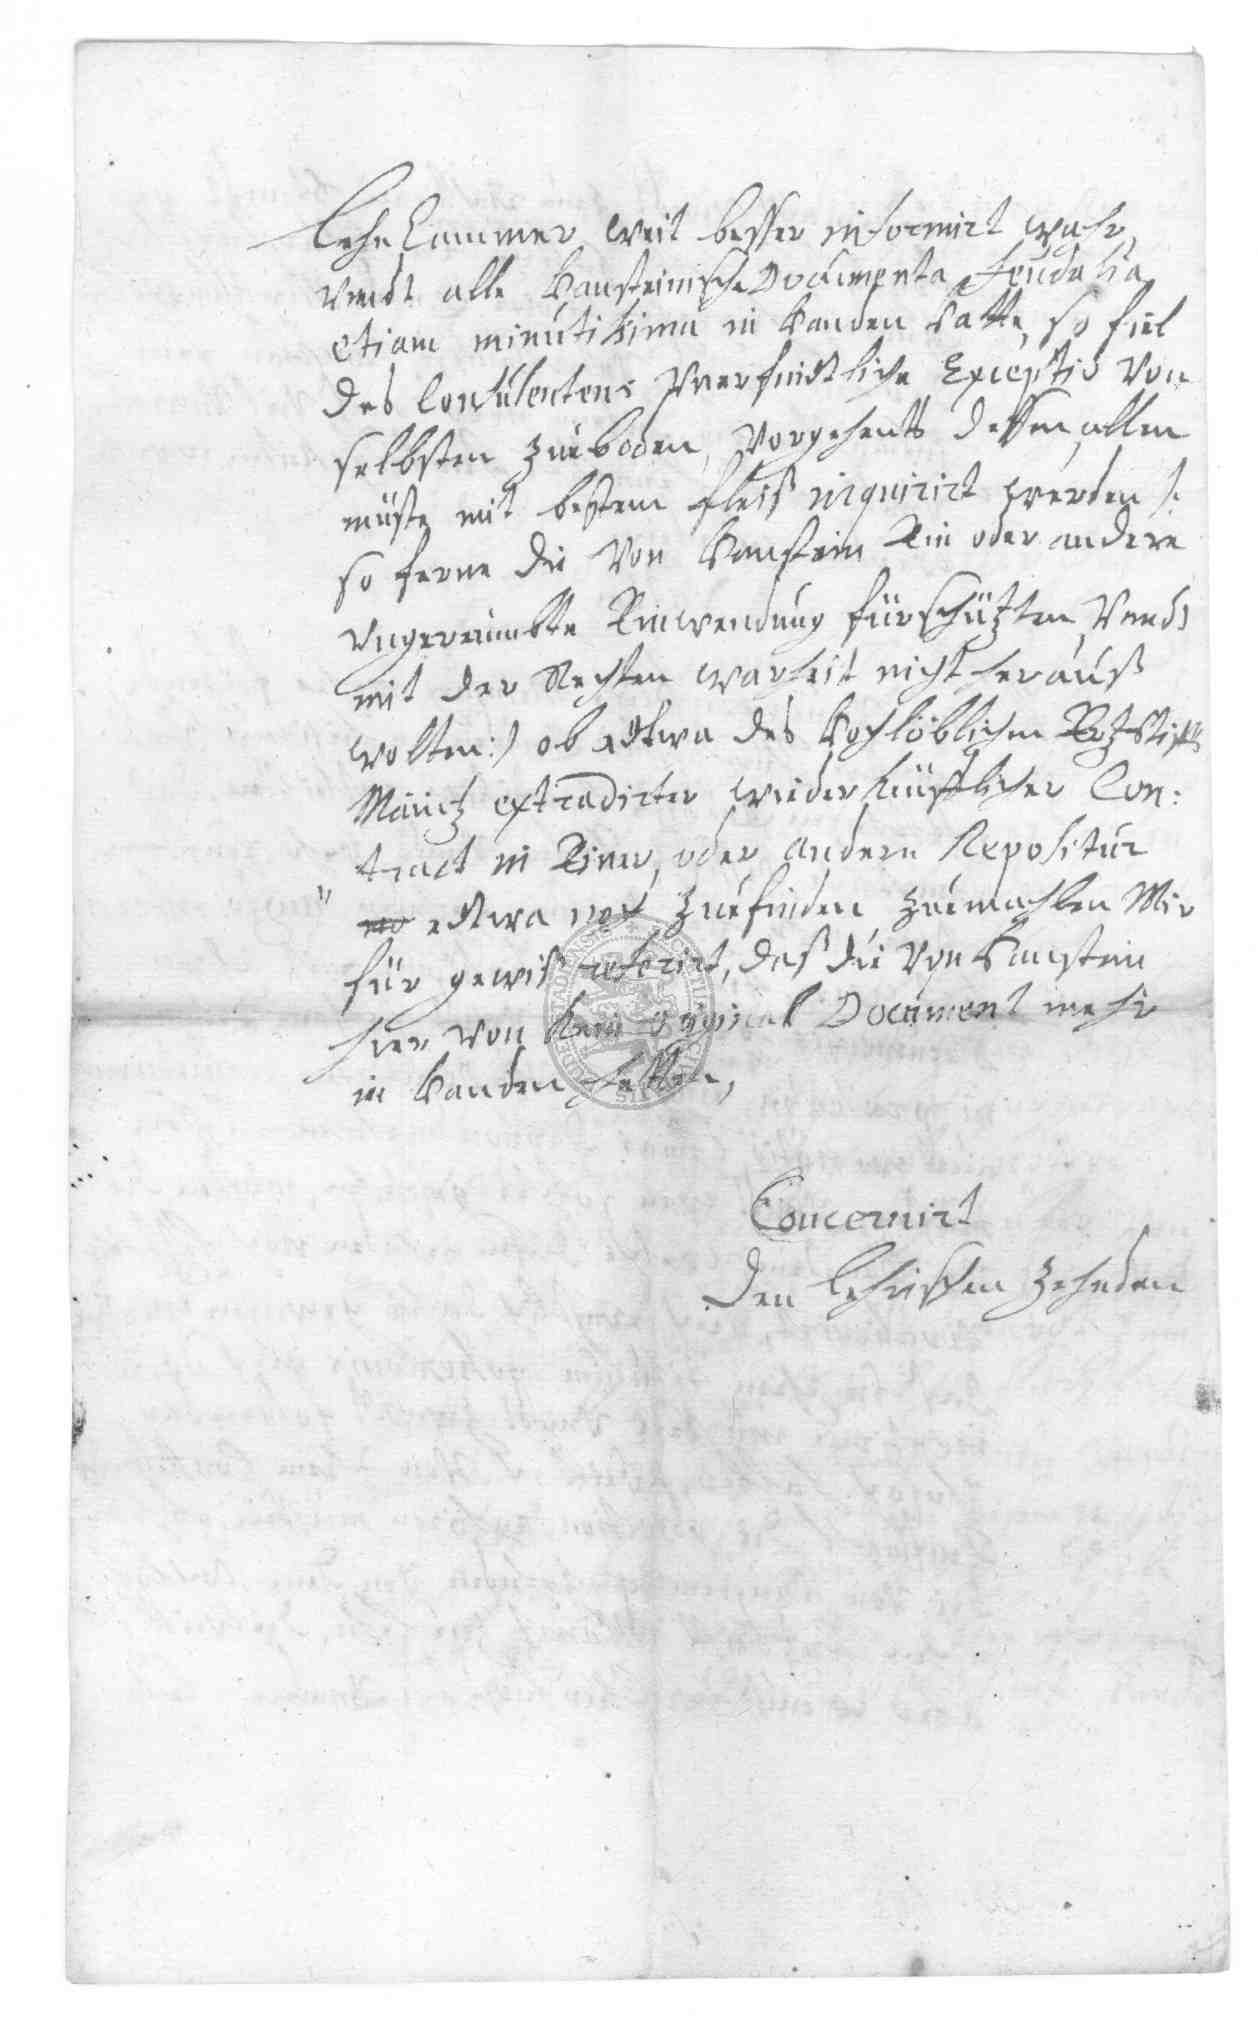 LehnCammer weit besser informirt wahr,
Vndt alle Hansteinische Documenta feudalia
etiam minutissima in Handen hatte, so fiel
des Consulentens Vnerfindtliche Exceptio Von
selbsten zue boden, Vorgehents dessen allen
müste mit bestem fleis inquirirt werden /:
so ferne die Von Hanstein Ein oder andere
Vngereimbte Einwendung fürschützten Vndt
mit der Rechten warheit nicht herauß
wolten:/ ob etwa des Hochlöblichen Ertzstiffts
Maintz extradirter wiederkäufflicher Con:
tract in Einer, oder andern Repositur
etwa noch zuefinden zuemahlen Mir
für gewiß referirt, daß die Von Hanstein
hier von kein original Document mehr
in Handen hetten,
Concernirt
den Zehnden